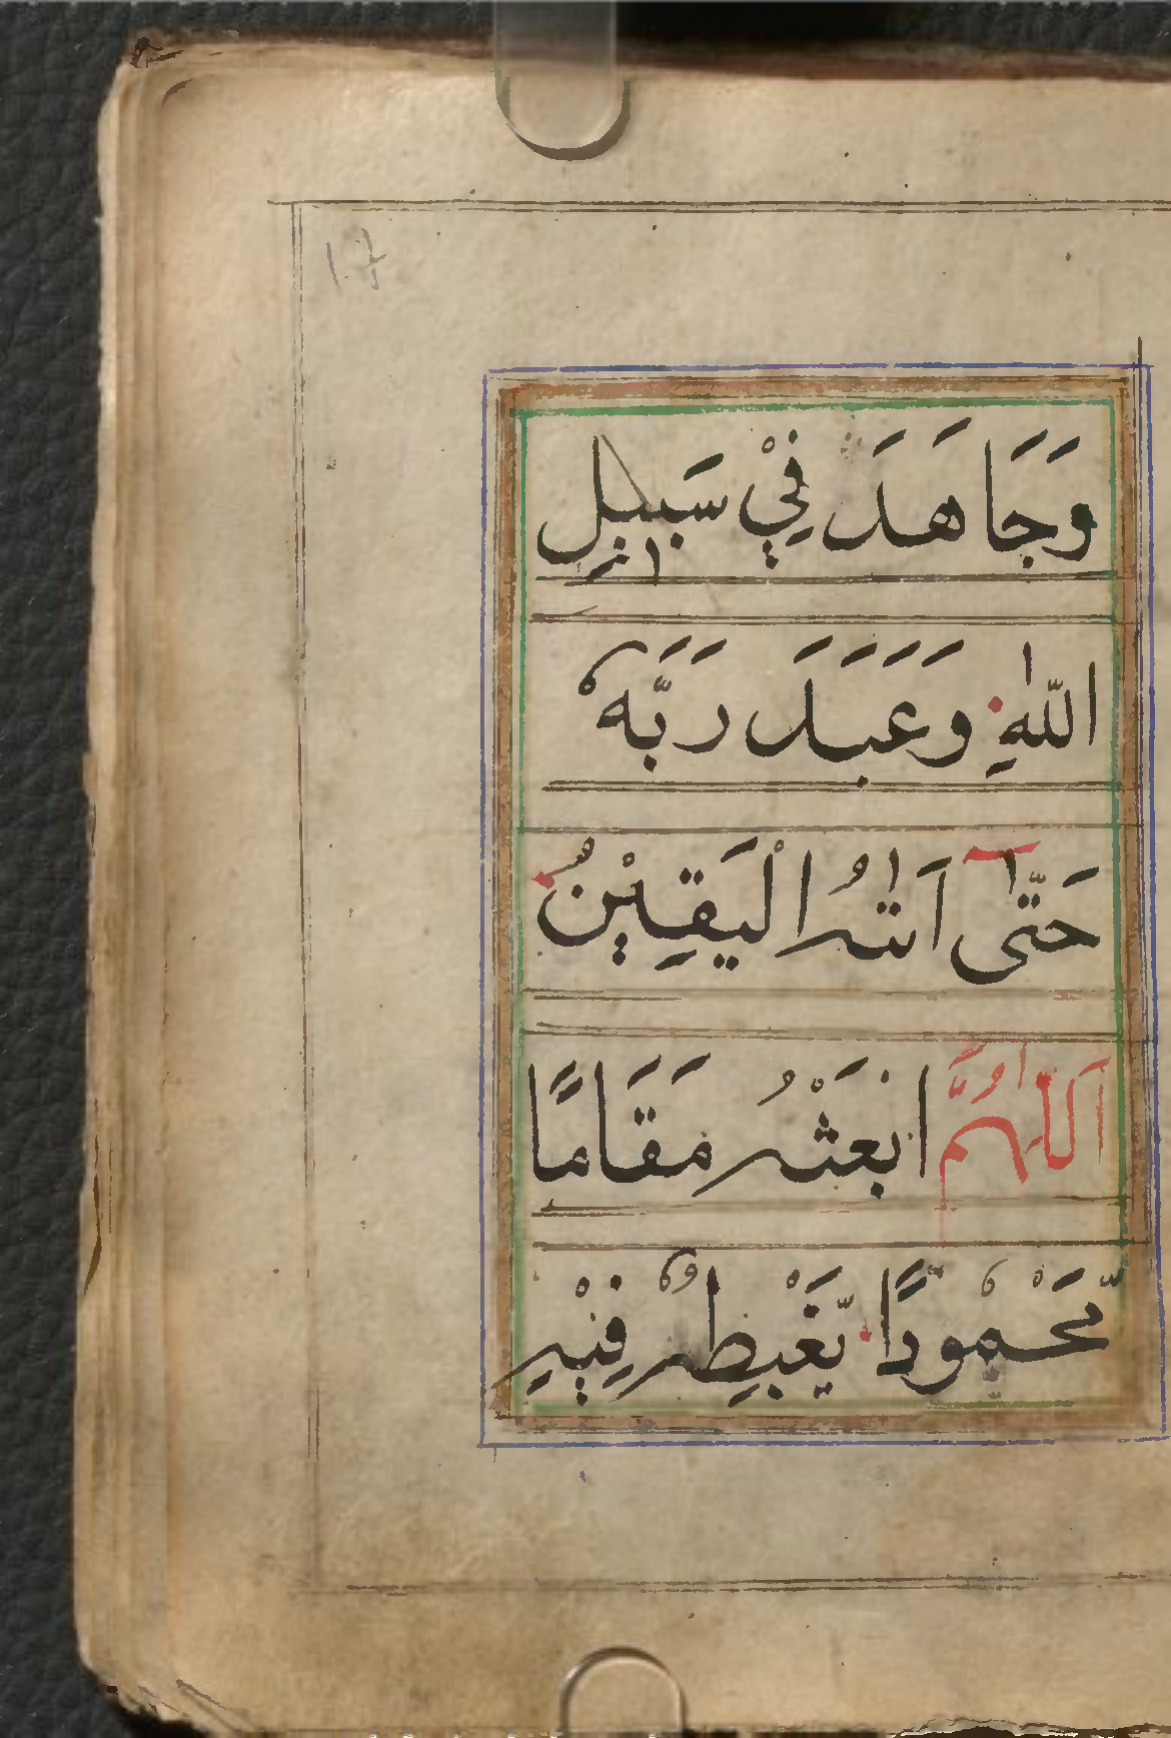 وَجَاهَدَ فِيْ سَبِيلِ
اللّٰهِ وَعَبَدَ رَبَّهٗ
حَتّٰىٓ اَتٰىهُ الْيَقِيْنُ
اَللّٰهُمَّ ابْعَثْهُ مَقَامًا
مَّحْمُوْدًا يَّغْبِطُهٗ فِيْهِ